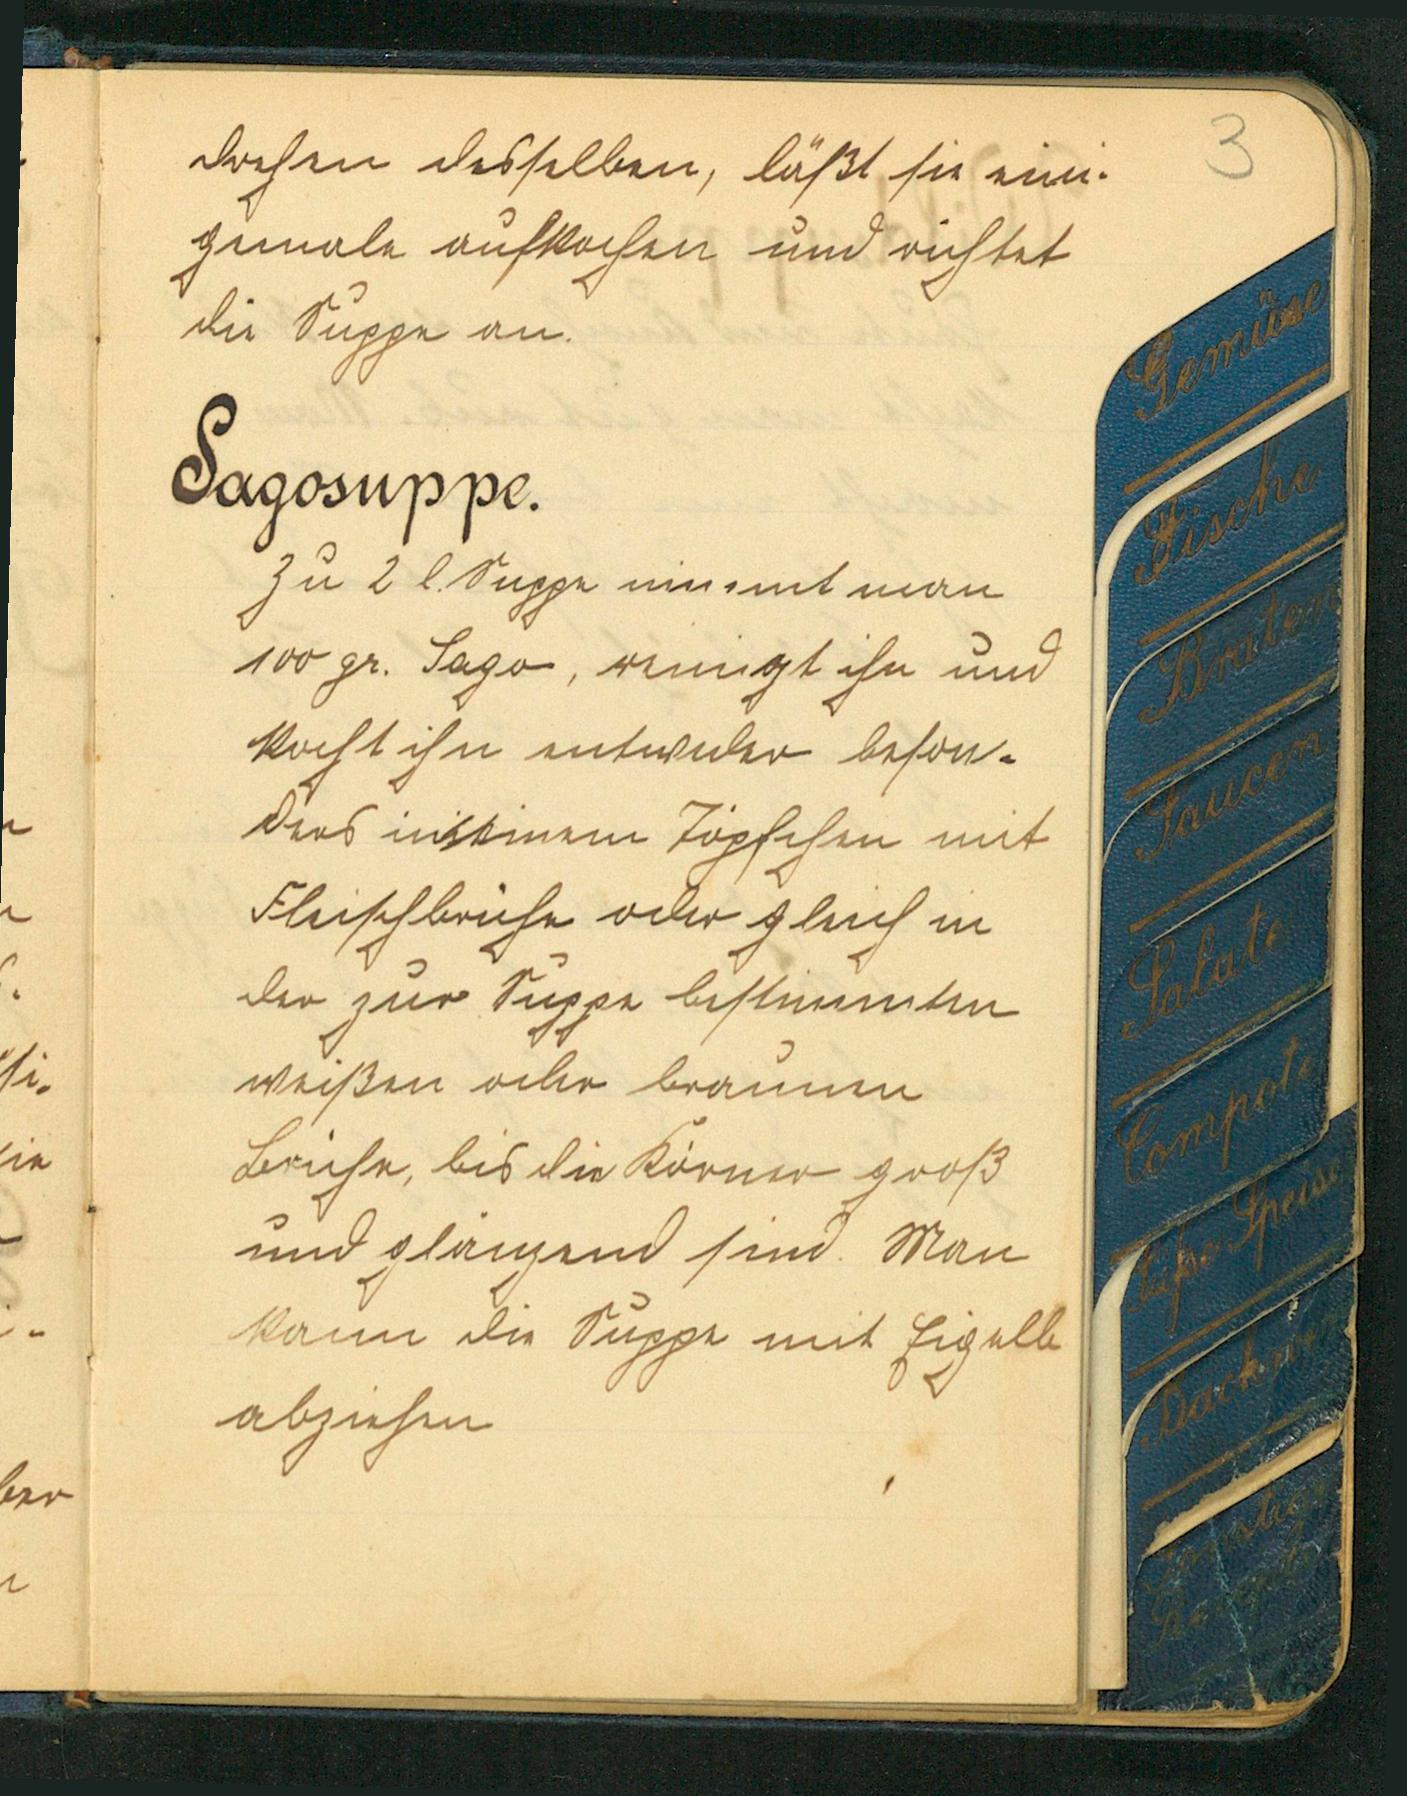 3
drehen desselben, läßt sie eini-
gemale aufkochen und richtet
die Suppe an.
Sagosuppe.
Zu 2 l. Suppe nimmt man
100 gr. Sago, reinigt ihn und
kocht ihn entweder beson-
ders in einem Töpfchen mit
Fleischbrühe oder gleich in
der zur Suppe bestimmten
weißen oder braunen
Brühe, bis die Körner groß
und glänzend sind. Man
kann die Suppe mit Eigelb
abziehen
Gemüse
Fische
Braten
Saucen
Salate
Compote
Süße Speise